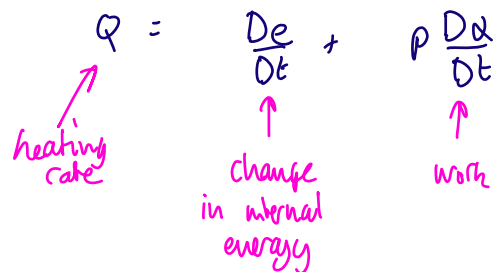 Q = De/Dt + p Dα/Dt
heating
rate
change
in internal
energy
work